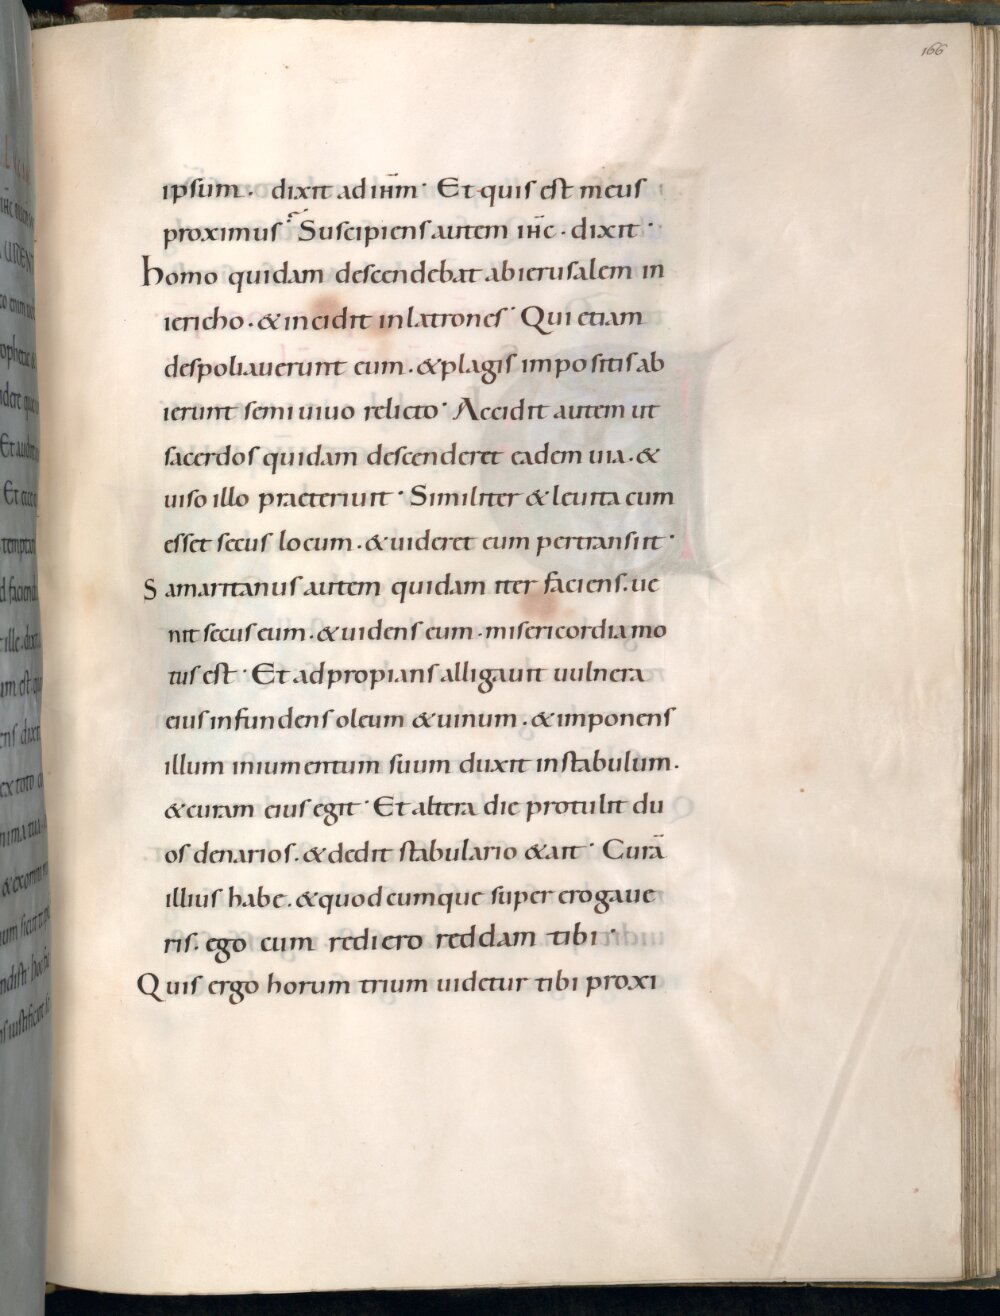 166
ipsum. dixit ad ihm̄. Et quis est meus
proximus? Suscipiens autem ihc̄. dixit.
homo quidam descendebat abierusalem in
iericho. & incidit inlatrones. Qui etiam
despoliauerunt eum. & plagis impositis ab
ierunt semiuiuo relicto. Accidit autem ut
sacerdos quidam descenderet eadem uia. &
uiso illo praeteriuit. Similiter & leuita cum
esset secus locum. & uideret eum pertransiit.
Samaritanus autem quidam iter faciens. ue
nit secus eum. & uidens eum. misericordia mo
tus est. Et adpropians alligauit uulnera
eius infundens oleum & uinum. & imponens
illum iniumentum suum duxit instabulum.
& curam eius egit. Et altera die protulit du
os denarios. & dedit stabulario & ait. Curā
illius habe. & quodcumque supererogaue
ris. ego cum rediero reddam tibi.
Quis ergo horum trium uidetur tibi proxi